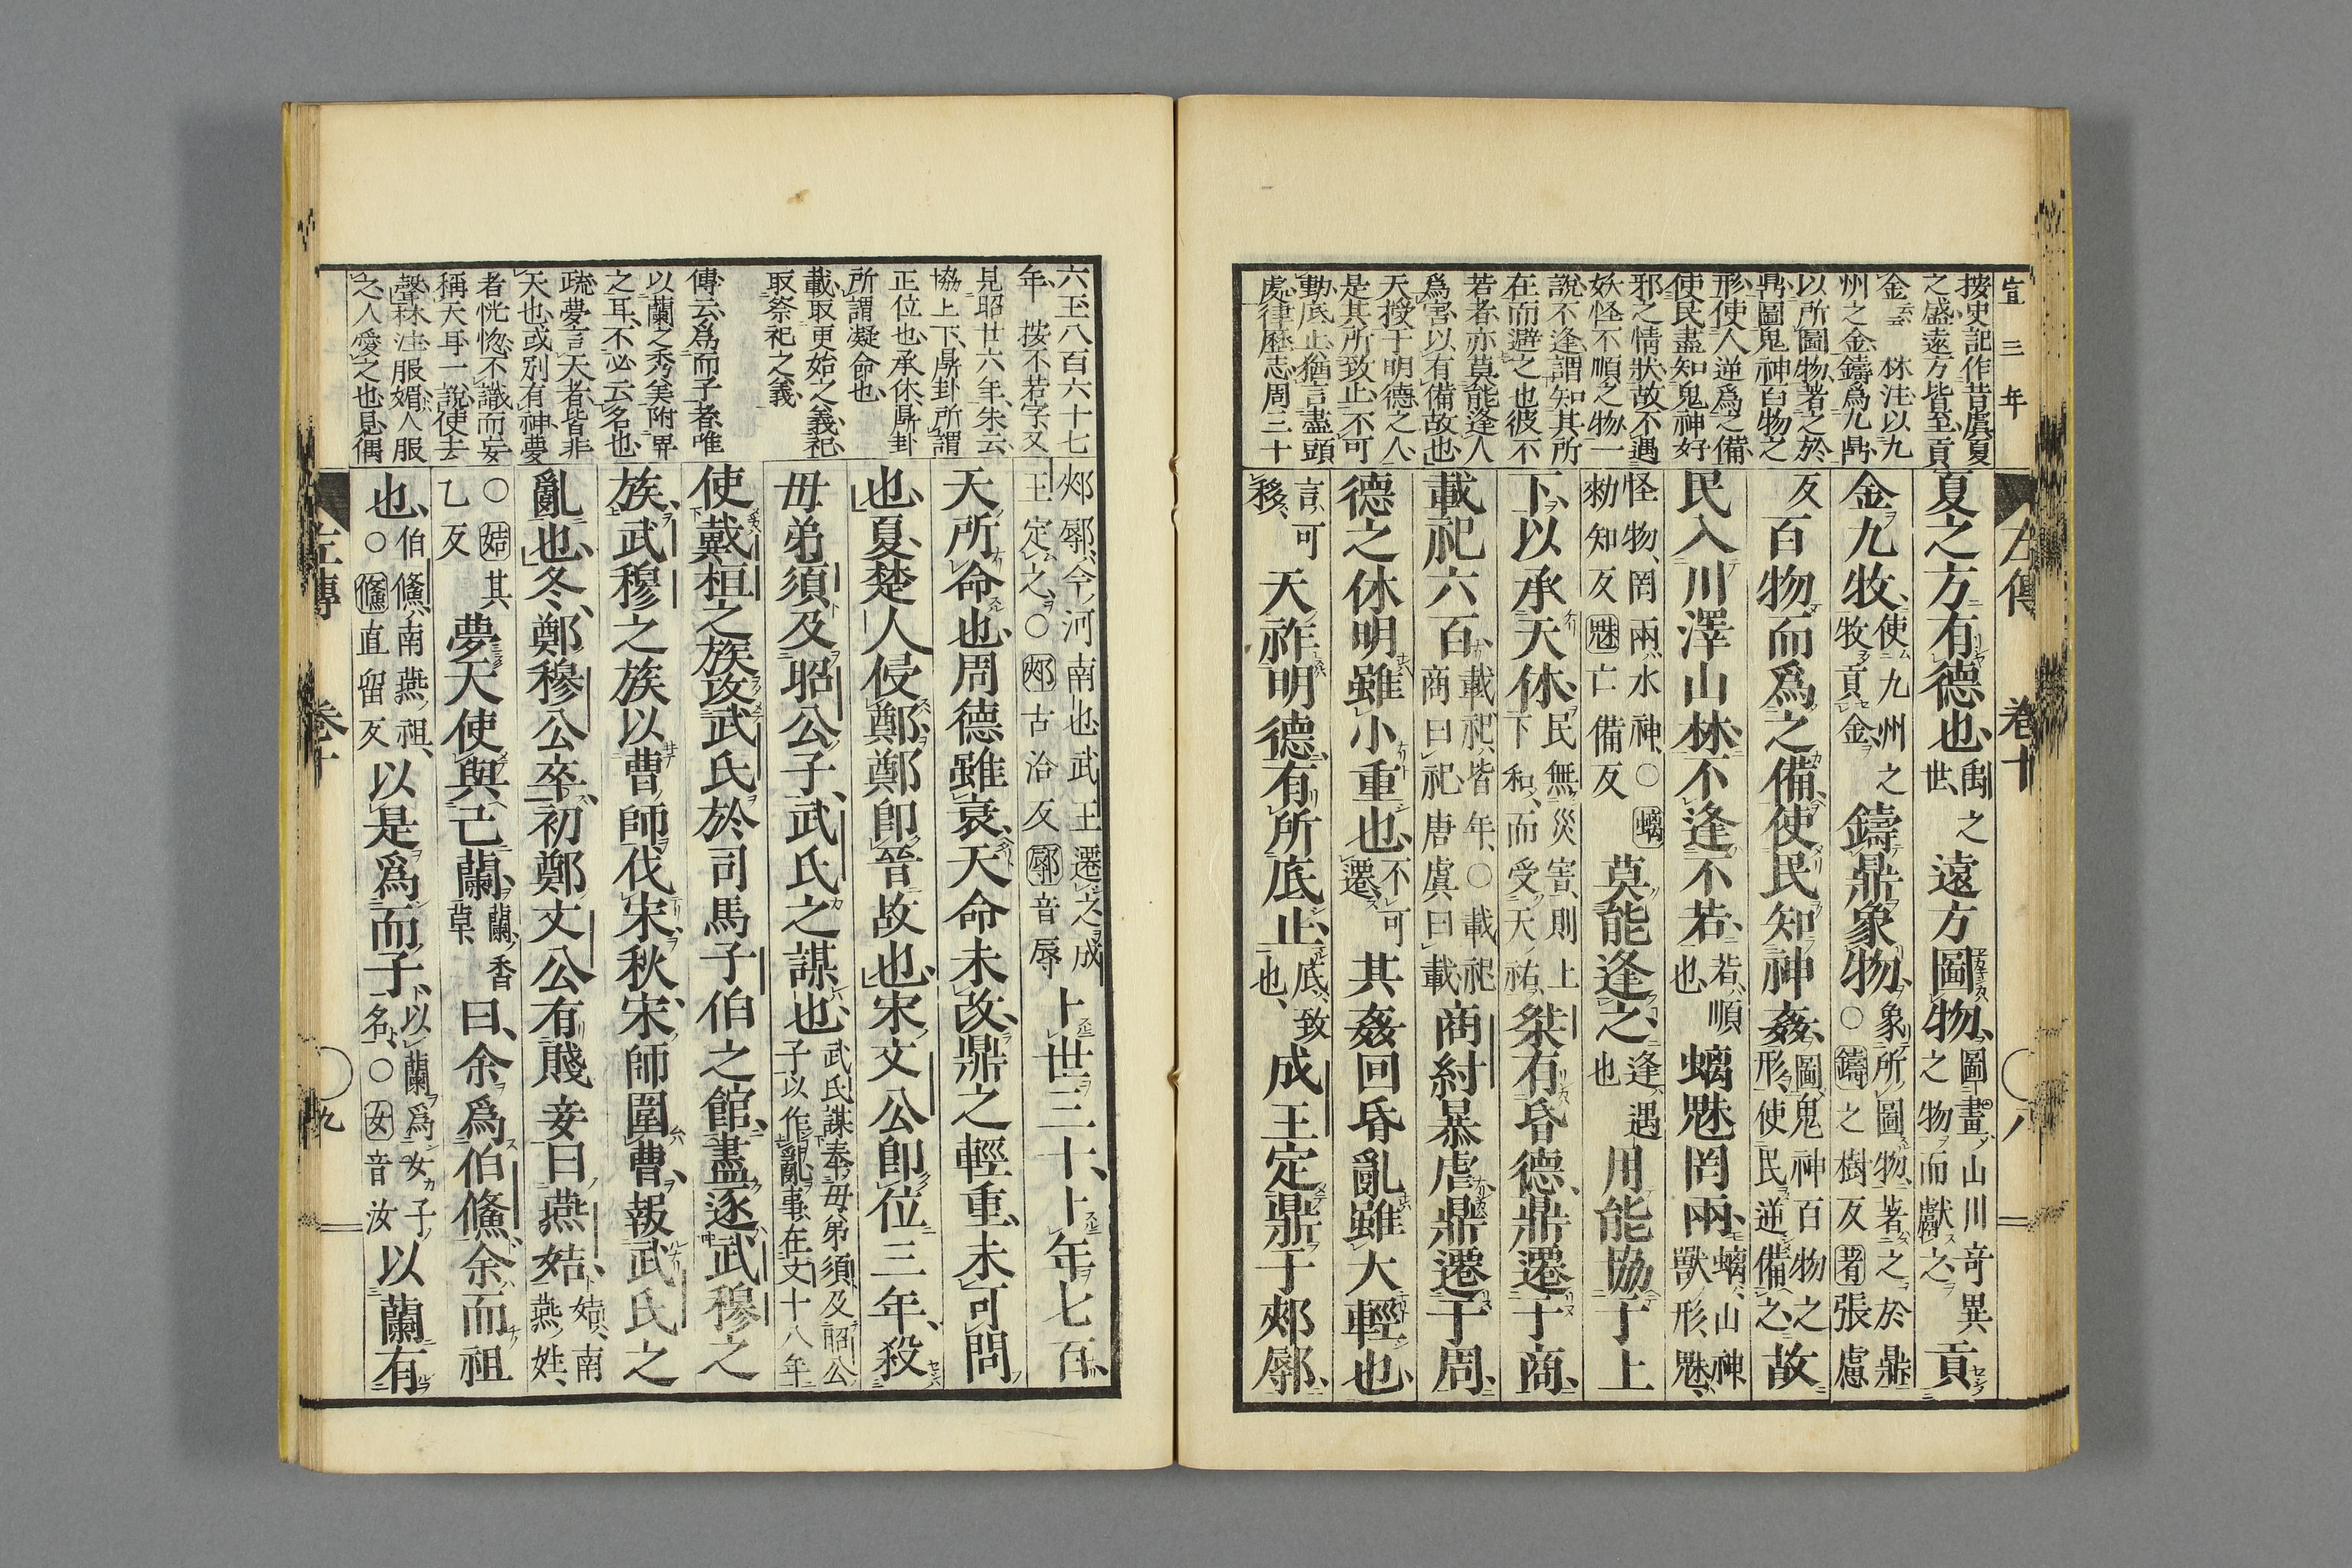 宣三年
按史記作昔虞夏
之盛遠方皆至貢
金云云 林注以九
州之金鑄爲九鼎
以所圖物著之於
鼎圖鬼神百物之
形使人逆爲之備
使民盡知鬼神好
邪之情狀故不遇
妖怪不順之物一
說不逢謂知其所
在而避之也彼不
若者亦莫能逢人
爲害以有備故也
天授于明德之人
是其所致止不可
動底止猶言盡頭
處律歷志周三十
左傳 卷十 八
夏之方有德也禹之世遠方圖物圖畫山川奇異之物而獻之貢
金九牧使九州之牧貢金鑄鼎象物象所圖物著之於鼎○鑄之樹反著張慮
反百物而爲之備使民知神姦圖鬼神百物之形使民逆備之故
民入川澤山林不逢不若若順也螭魅罔兩螭山神獸形魅
怪物罔兩水神○螭勑知反魅亡備反莫能逢之逢遇也用能協于上
下以承天休民無災害則上下和而受天祐桀有昏德鼎遷于商
載祀六百載祀皆年○載祀商曰祀唐虞曰載商紂暴虐鼎遷于周
德之休明雖小重也不可遷其姦回昏亂雖大輕也
言可移天祚明德有所底止底致也成王定鼎于郟鄏
六王八百六十七
年 按不若字又
見昭廿六年朱云
協上下鼎卦所謂
正位也承休鼎卦
所謂凝命也
載取更始之義祀
取祭祀之義
傳云爲而子者唯
以蘭之秀美附畀
之耳不必云名也
疏夢言天者皆非
天也或別有神夢
者恍惚不識而妄
稱天耳一說使去
聲林注服媚人服
之人愛之也見偶
郟鄏今河南也武王遷之成王定之○郟古洽反鄏音辱卜世三十卜年七百
天所命也周德雖衰天命未改鼎之輕重未可問
也夏楚人侵鄭鄭卽晉故也宋文公卽位三年殺
毋弟須及昭公子武氏之謀也武氏謀奉毋弟須及昭公子以作亂事在文十八年
使戴桓之族攻武氏於司馬子伯之館盡逐武穆之
族武穆之族以曹師伐宋秋宋師圍曹報武氏之
亂也冬鄭穆公卒初鄭文公有賤妾曰燕姞姞南燕姓
○姞其乙反夢天使與己蘭蘭香草曰余爲伯鯈余而祖
也伯鯈南燕祖○鯈直留反以是爲而子以蘭爲女子名○女音汝以蘭有
左傳 卷十 九